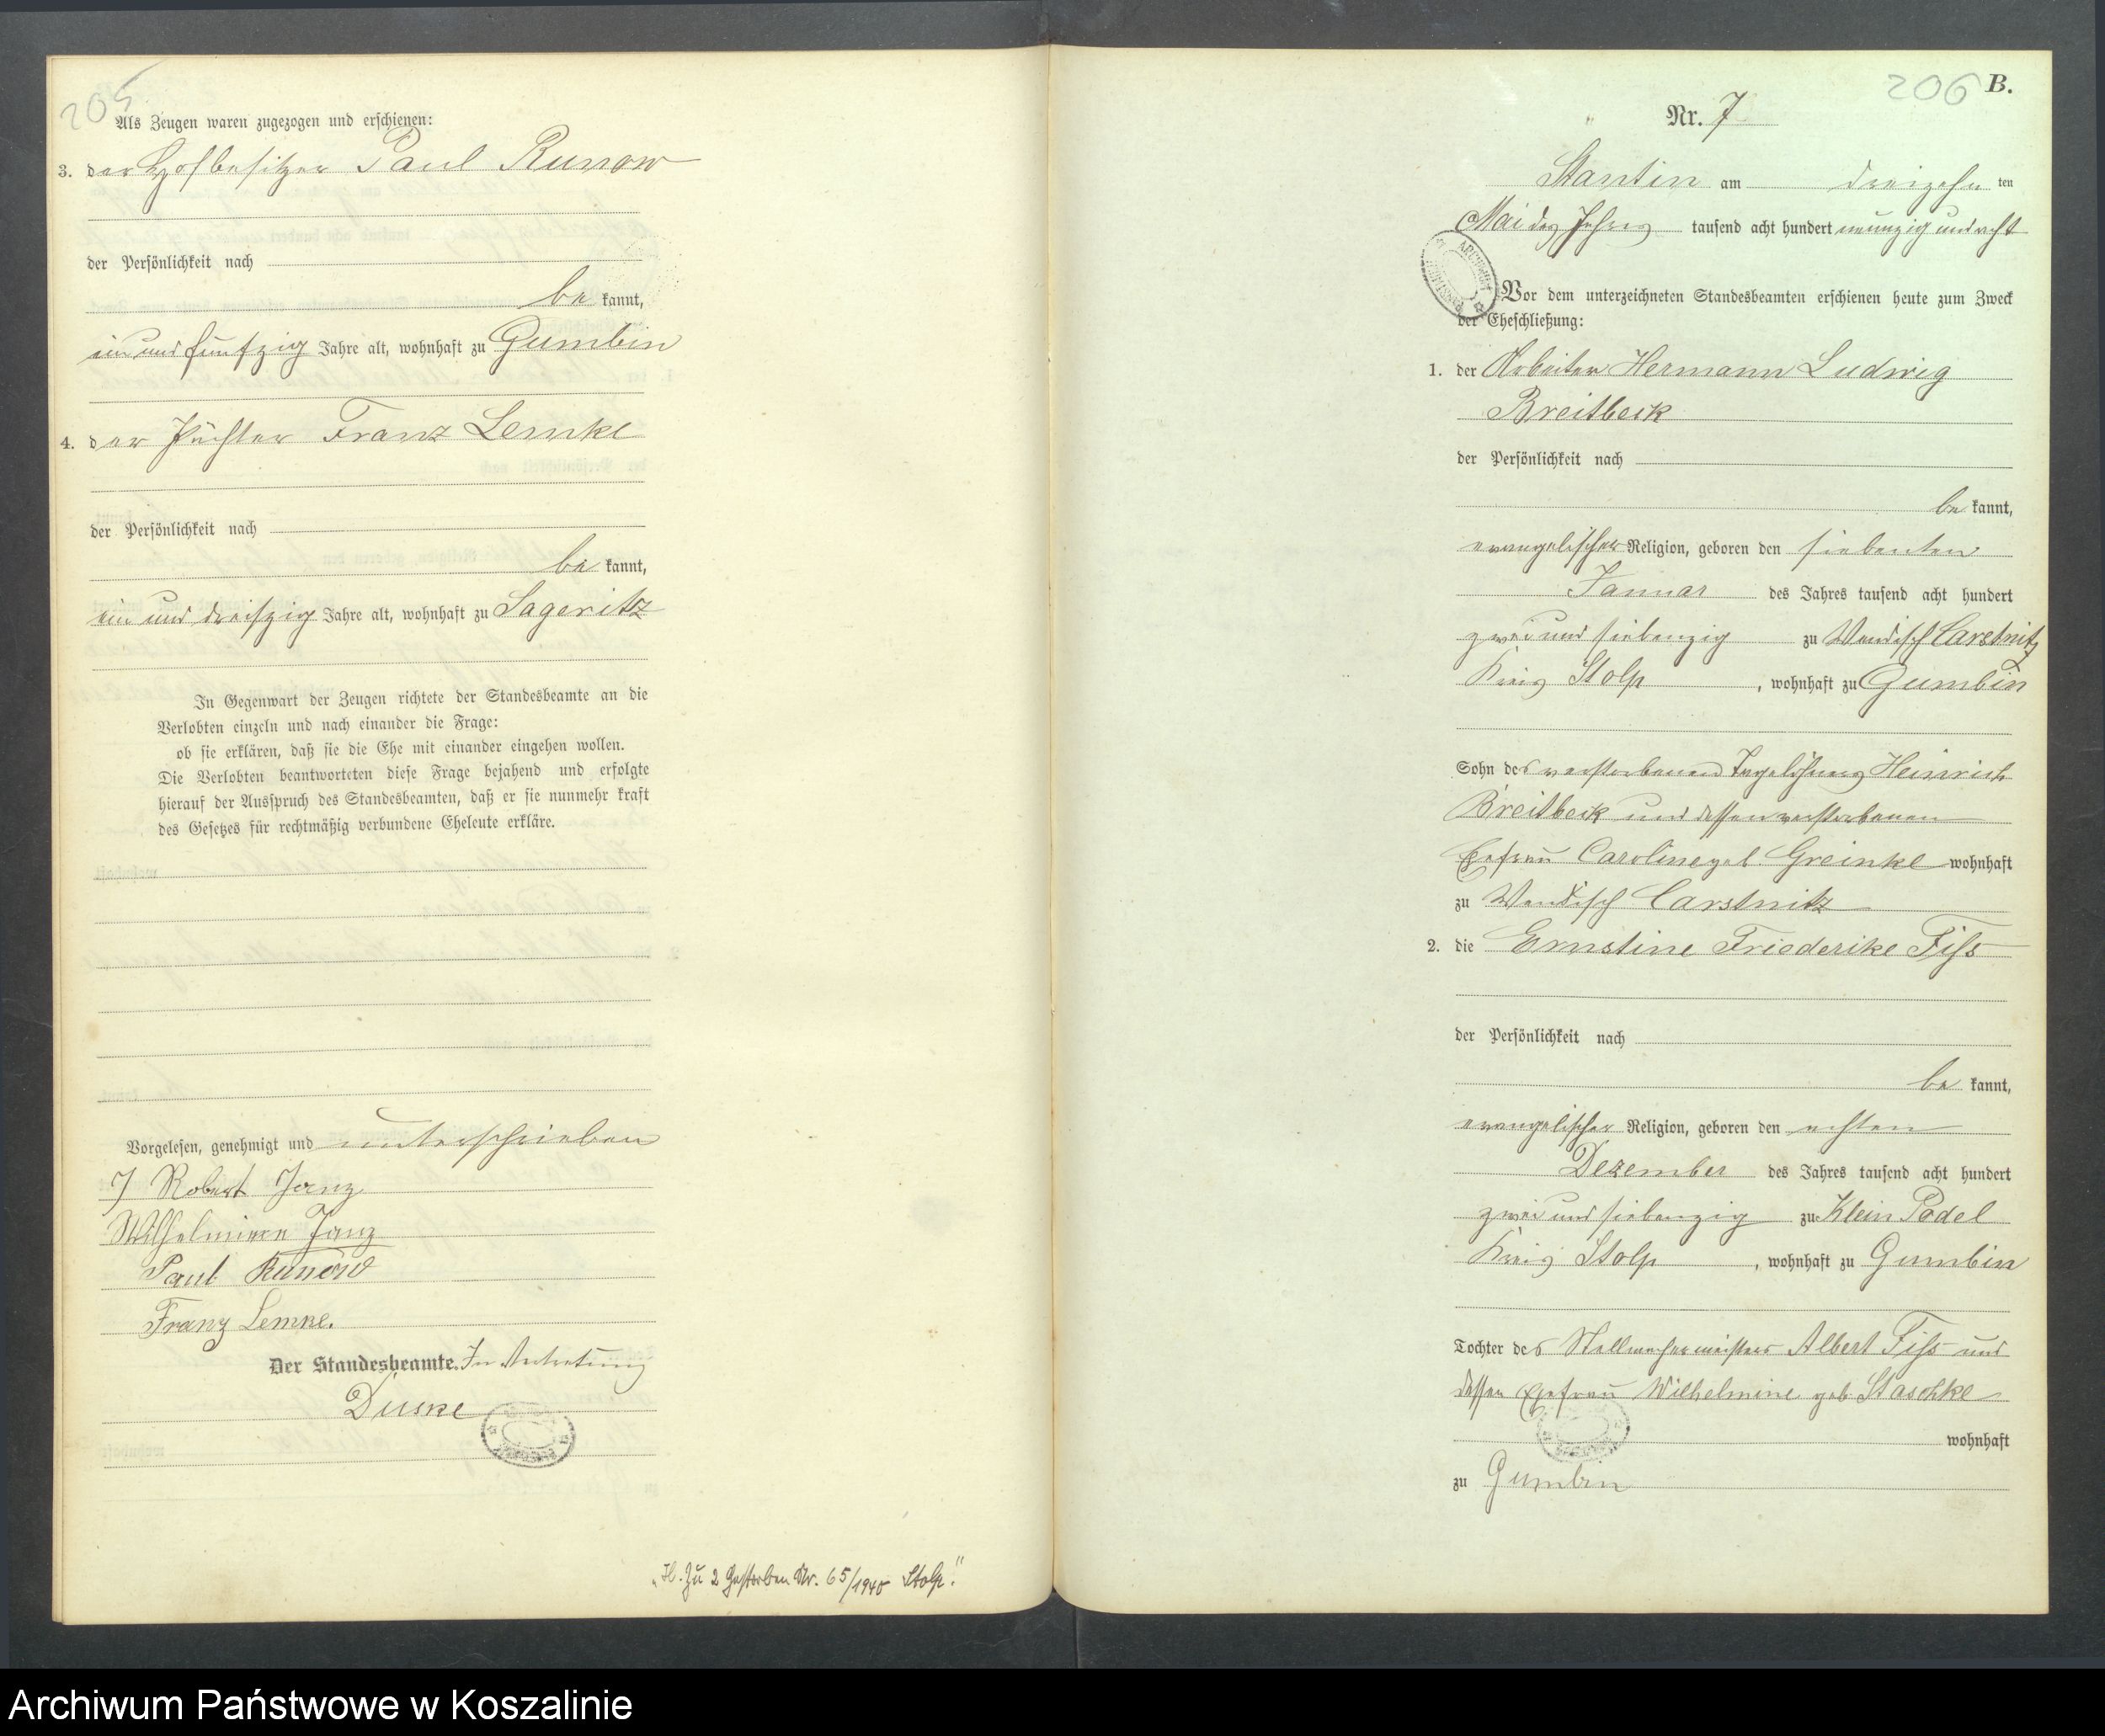 205
Als Zeugen waren zugezogen und erschienen:
3. der Hofbesitzer Paul Runow
der Persönlichkeit nach
be kannt,
ein und fünfzig Jahre alt, wohnhaft zu Gumbin
4. der Pächter Franz Lemke
der Persönlichkeit nach
be kannt,
ein und dreißzig Jahre alt, wohnhaft zu Lageritz
In Gegenwart der Zeugen richtete der Standesbeamte an die
Verlobten einzeln und nach einander die Frage:
ob sie erklären, daß sie die Ehe mit einander eingehen wollen.
Die Verlobten beantworteten diese Frage bejahend und erfolgte
hierauf der Ausspruch des Standesbeamten, daß er sie nunmehr kraft
des Gesetzes für rechtmäßig verbundene Eheleute erkläre.
Vorgelesen, genehmigt und unterschrieben
Robert Janz
Wilhelmine Janz
Paul Runow
Franz Lemke.
Der Standesbeamte. In Vertretung
„H. Zu 2 Gestorben Nr. 65/1940 Stolp."
206 B.
Nr. 7
Stantin am dreizehn ten
Mai des Jahres tausend acht hundert neunzig und acht
Vor dem unterzeichneten Standesbeamten erschienen heute zum Zweck
der Eheschließung:
1. der Arbeiter Hermann Ludwig
Breitbeck
der Persönlichkeit nach
be kannt,
evangelischer Religion, geboren den siebenten
Januar des Jahres tausend acht hundert
zwei und siebenzig zu Wendisch Carstnitz
Kreis Stolp, wohnhaft zu Gumbin
Sohn des verstorbenen Tagelöhners Heinrich
Breitbeck und dessen verstorbenen
Ehefrau Caroline geb Greinke wohnhaft
zu Wendisch Carstnitz
2. die Ernstine Friederike Fiss
der Persönlichkeit nach
be kannt,
evangelischer Religion, geboren den achten
Dezember des Jahres tausend acht hundert
zwei und siebenzig zu Klein Podel
Kreis Stolp, wohnhaft zu Gumbin
Tochter des Stellmachermeisters Albert Fiss und
dessen Ehefrau Wilhelmine geb Staschke
wohnhaft
zu Gumbin
Archiwum Państwowe w Koszalinie